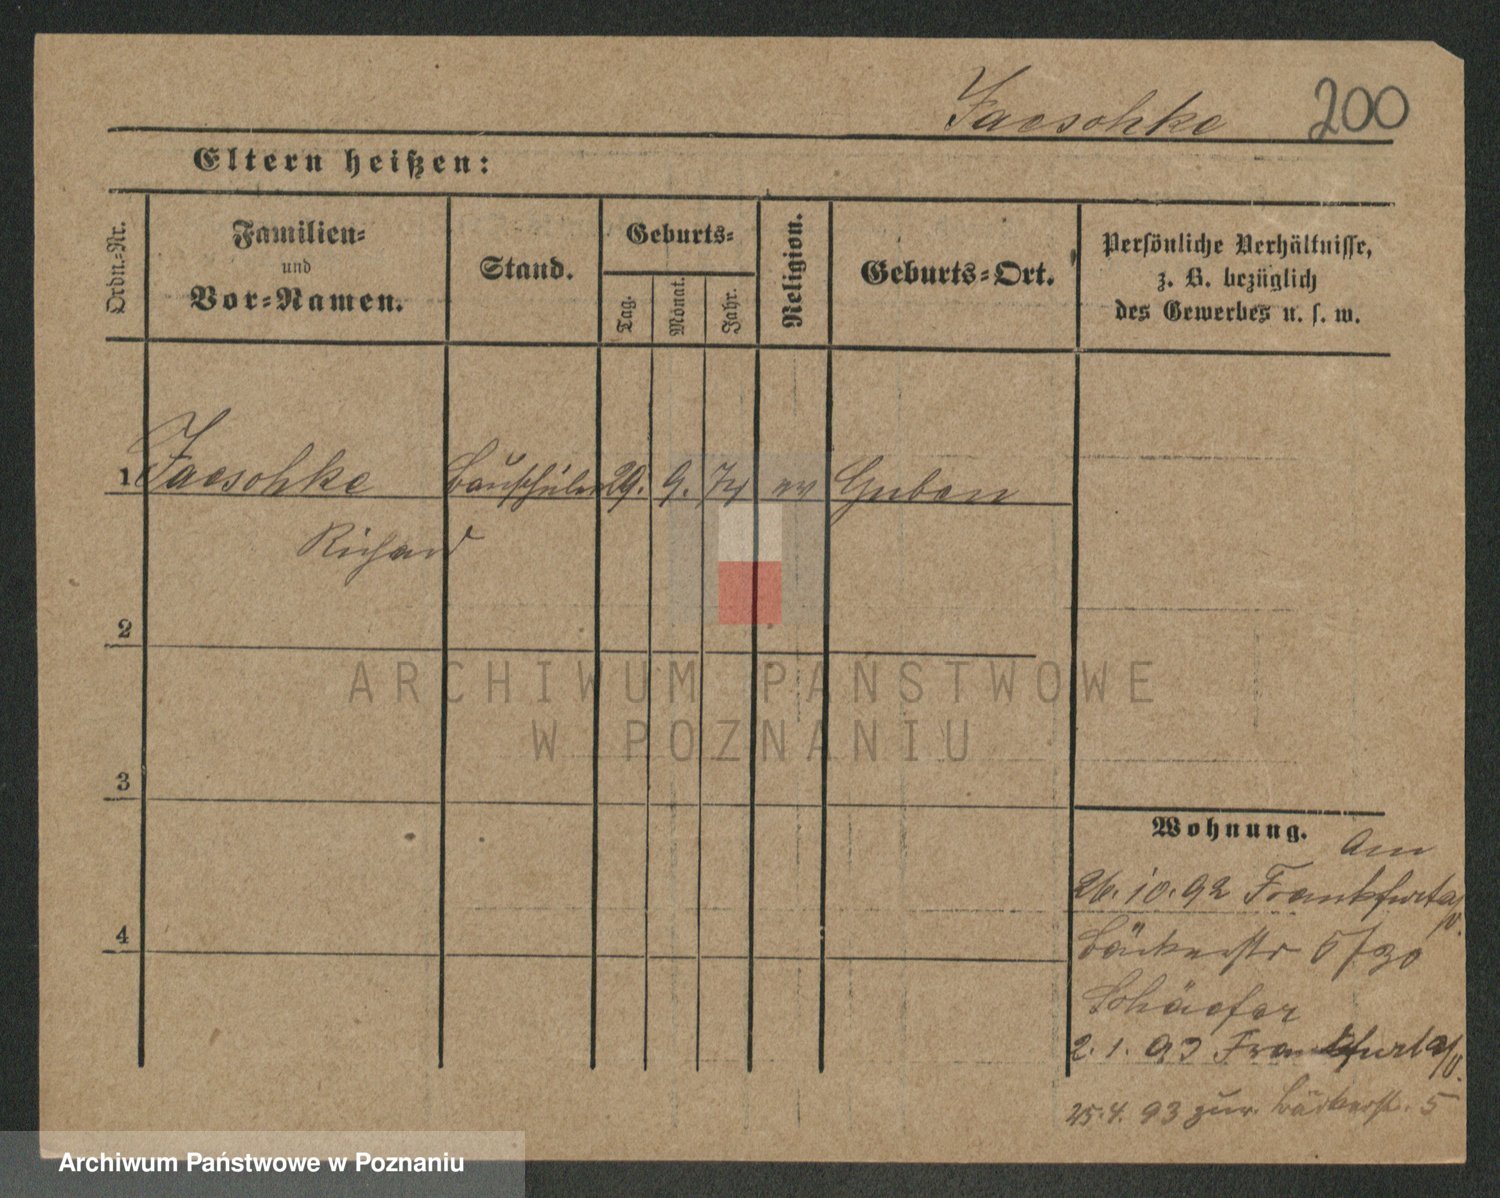 Jaeschke 200
Eltern heißen:
Ordn.-Nr.
Familien-
und
Vor-Namen.
Stand.
Geburts-
Tag.
Monat.
Jahr.
Religion.
Geburts-Ort.
Persönliche Verhältnisse,
z. B. bezüglich
des Gewerbes u. s. w.
1 Jaeschke Bauschüler 29. 9. 74 ev Guben
Richard
2
3
4
Wohnung.
Am
26. 10. 92 Frankfurt a/O.
Bäckerstr 5/30
Schaefer
2. 1. 93 Frankfurt a/O.
25. 4. 93 zur. Bäckerstr. 5
ARCHIWUM PAŃSTWOWE
W POZNANIU
Archiwum Państwowe w Poznaniu